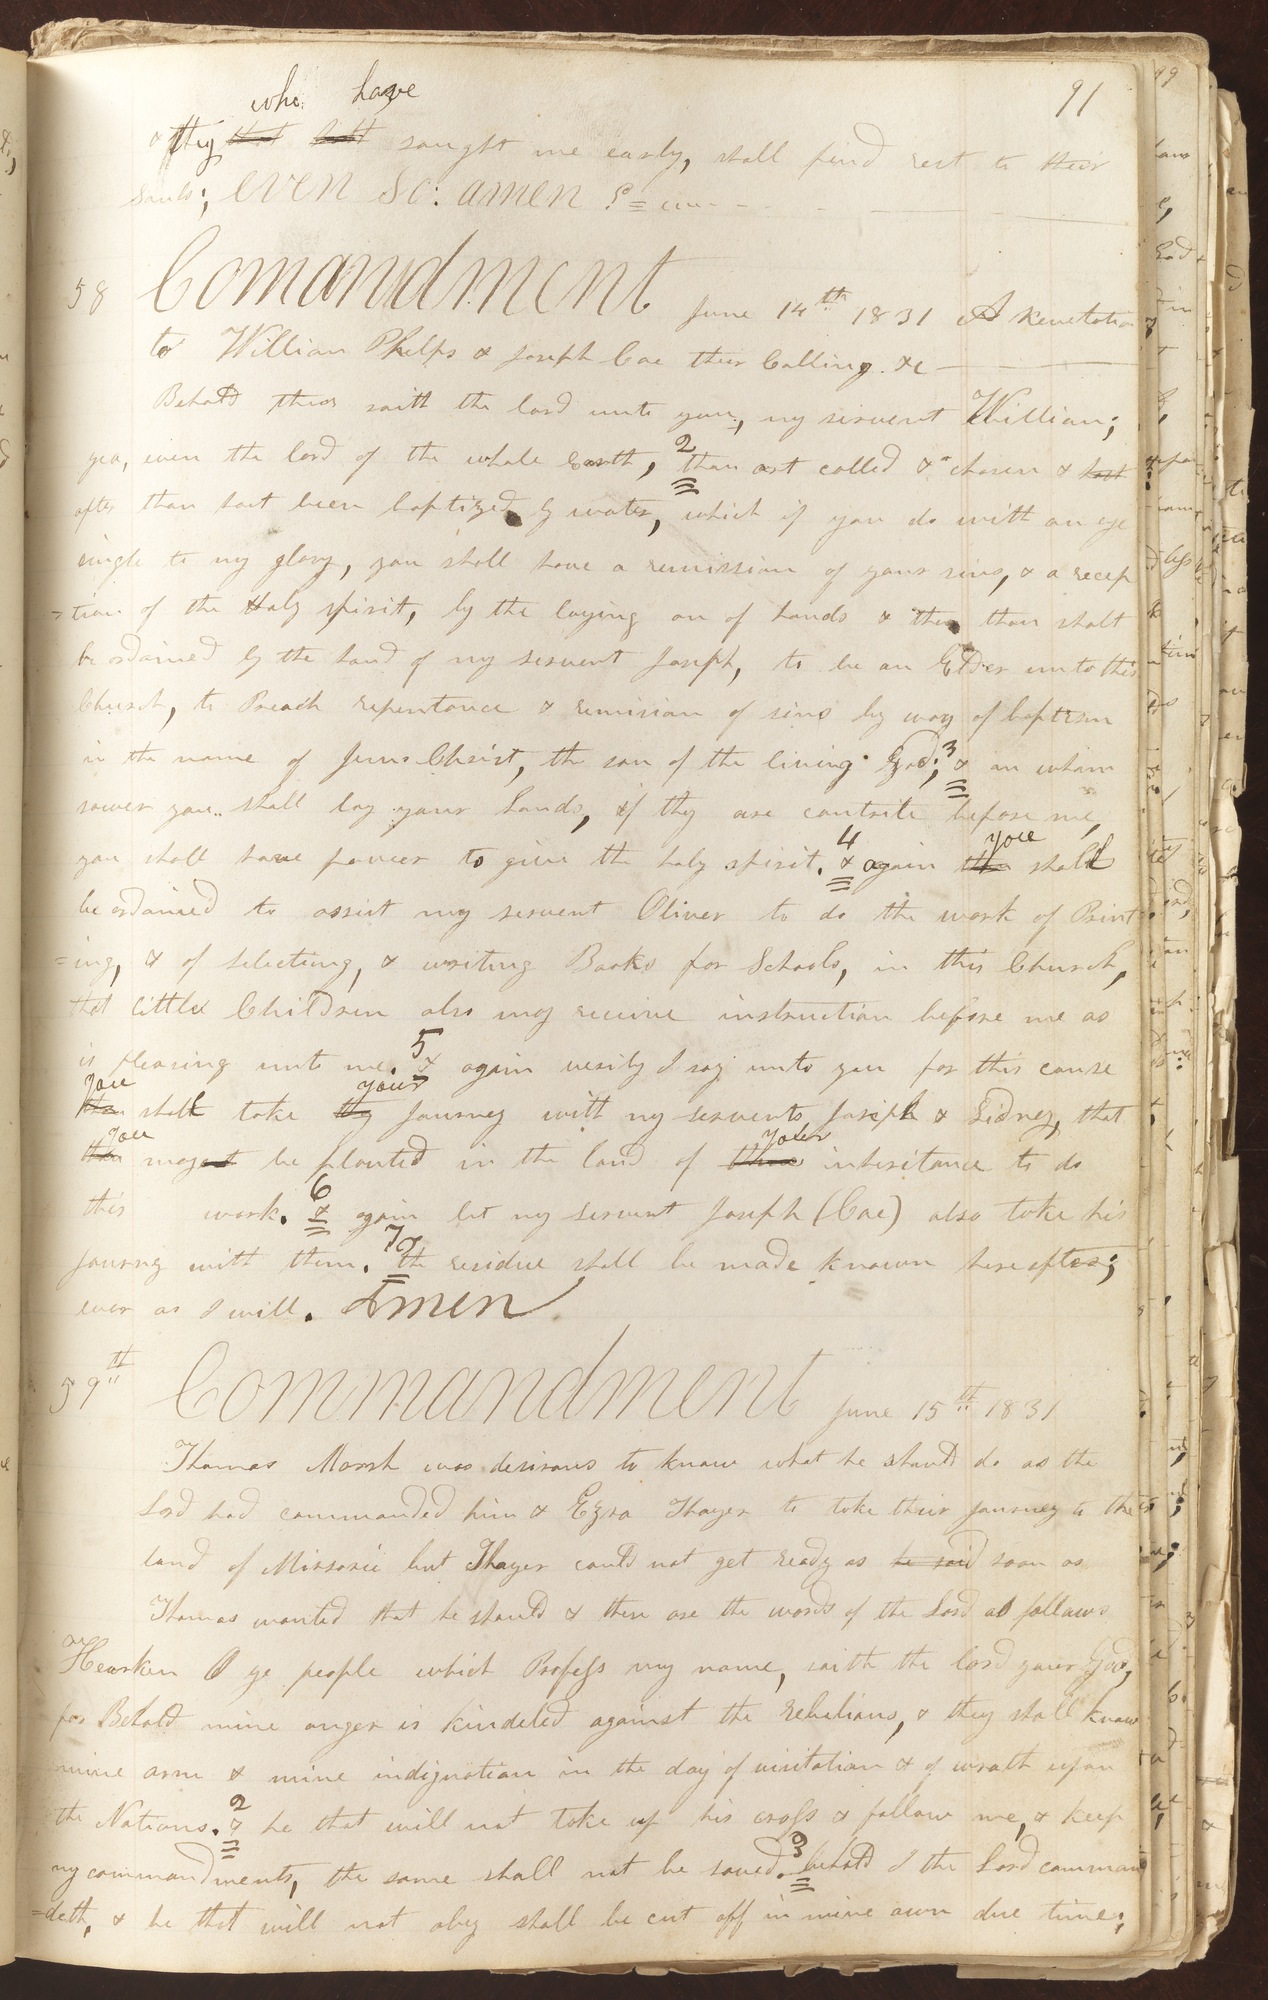 91
who have
& they that hath sought me early, shall find rest to their
Souls; even so: amen
58 Comandment June 14th 1831 A Revelation
to William Phelps & Joseph Coe their Calling &c
Behold thus saith the lord unto you, my servent William;
yea, even the lord of the whole Earth, 2 thou art called & chosen & hast
after thou hast been baptized by water, which if you do with an eye
single to my glory, you shall have a remission of your sins, & a recep
=tion of the Holy spirit, by the laying on of hands & then thou shalt
be ordained by the hand of my servent Joseph, to be an Elder unto this
Church, to Preach repentance & remision of sins by way of baptism
in the name of Jesus Christ, the son of the living God; 3 & on whom
soever you shall lay your hands, if they are contrite before me,
you
you shall have power to give the holy spirit. 4 & again thou shall
be ordained to assist my servent Oliver to do the work of Print
=ing, & of selecting, & writing Books for Schools, in this Church,
that little Children also may receive instruction before me as
is pleasing unto me. 5 & again verily I say unto you for this cause
you your
thou shall take thy Journey with my servents Joseph & Sidney, that
you your
thou mayest be planted in the land of thine inheritance to do
this work. 6 & again let my servent Joseph (Coe) also take his
journy with them. 7 & the residue shall be made known hereafter;
even as I will. Amen
59th Commandment June 15th 1831
Thomas Marsh was desirous to know what he should do as the
Lord had commanded him & Ezra Thayer to take their journey to the
land of Missorie but Thayer could not get ready as he said soon as
Thomas wanted that he should & these are the words of the Lord as follows
Hearken O ye people which Profess my name, saith the lord your God,
for Behold mine anger is kindeled against the rebelious, & they shall know
mine arm & mine indignation in the day of visitation & of wrath upon
the Nations. 2 & he that will not take up his cross & follow me, & keep
my commandments, the same shall not be saved. 3 behold I the Lord comman
=deth, & he that will not obey shall be cut off in mine own due time;